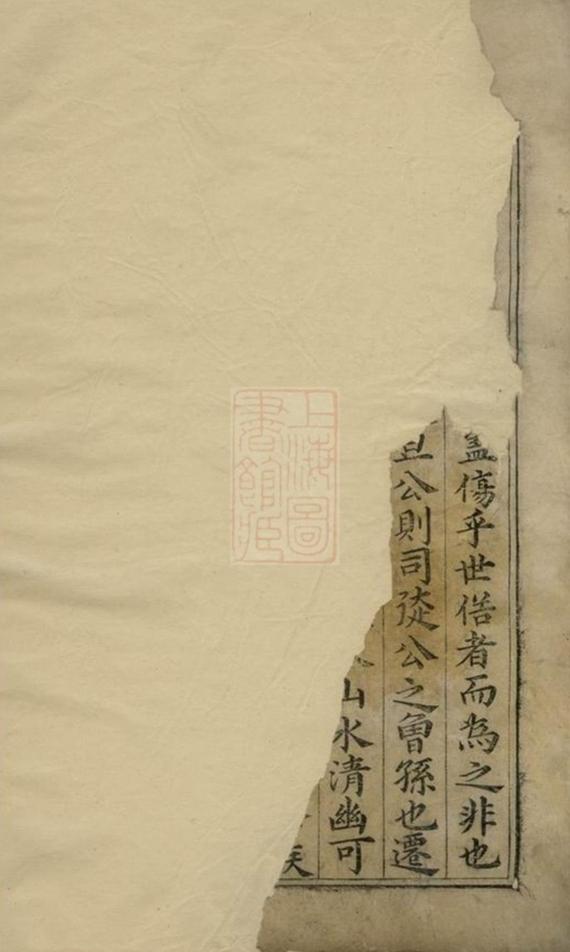 盖傷乎世者而為之非也
公則司從公之曾孫也遷
山水清幽可
上海圖
書館藏